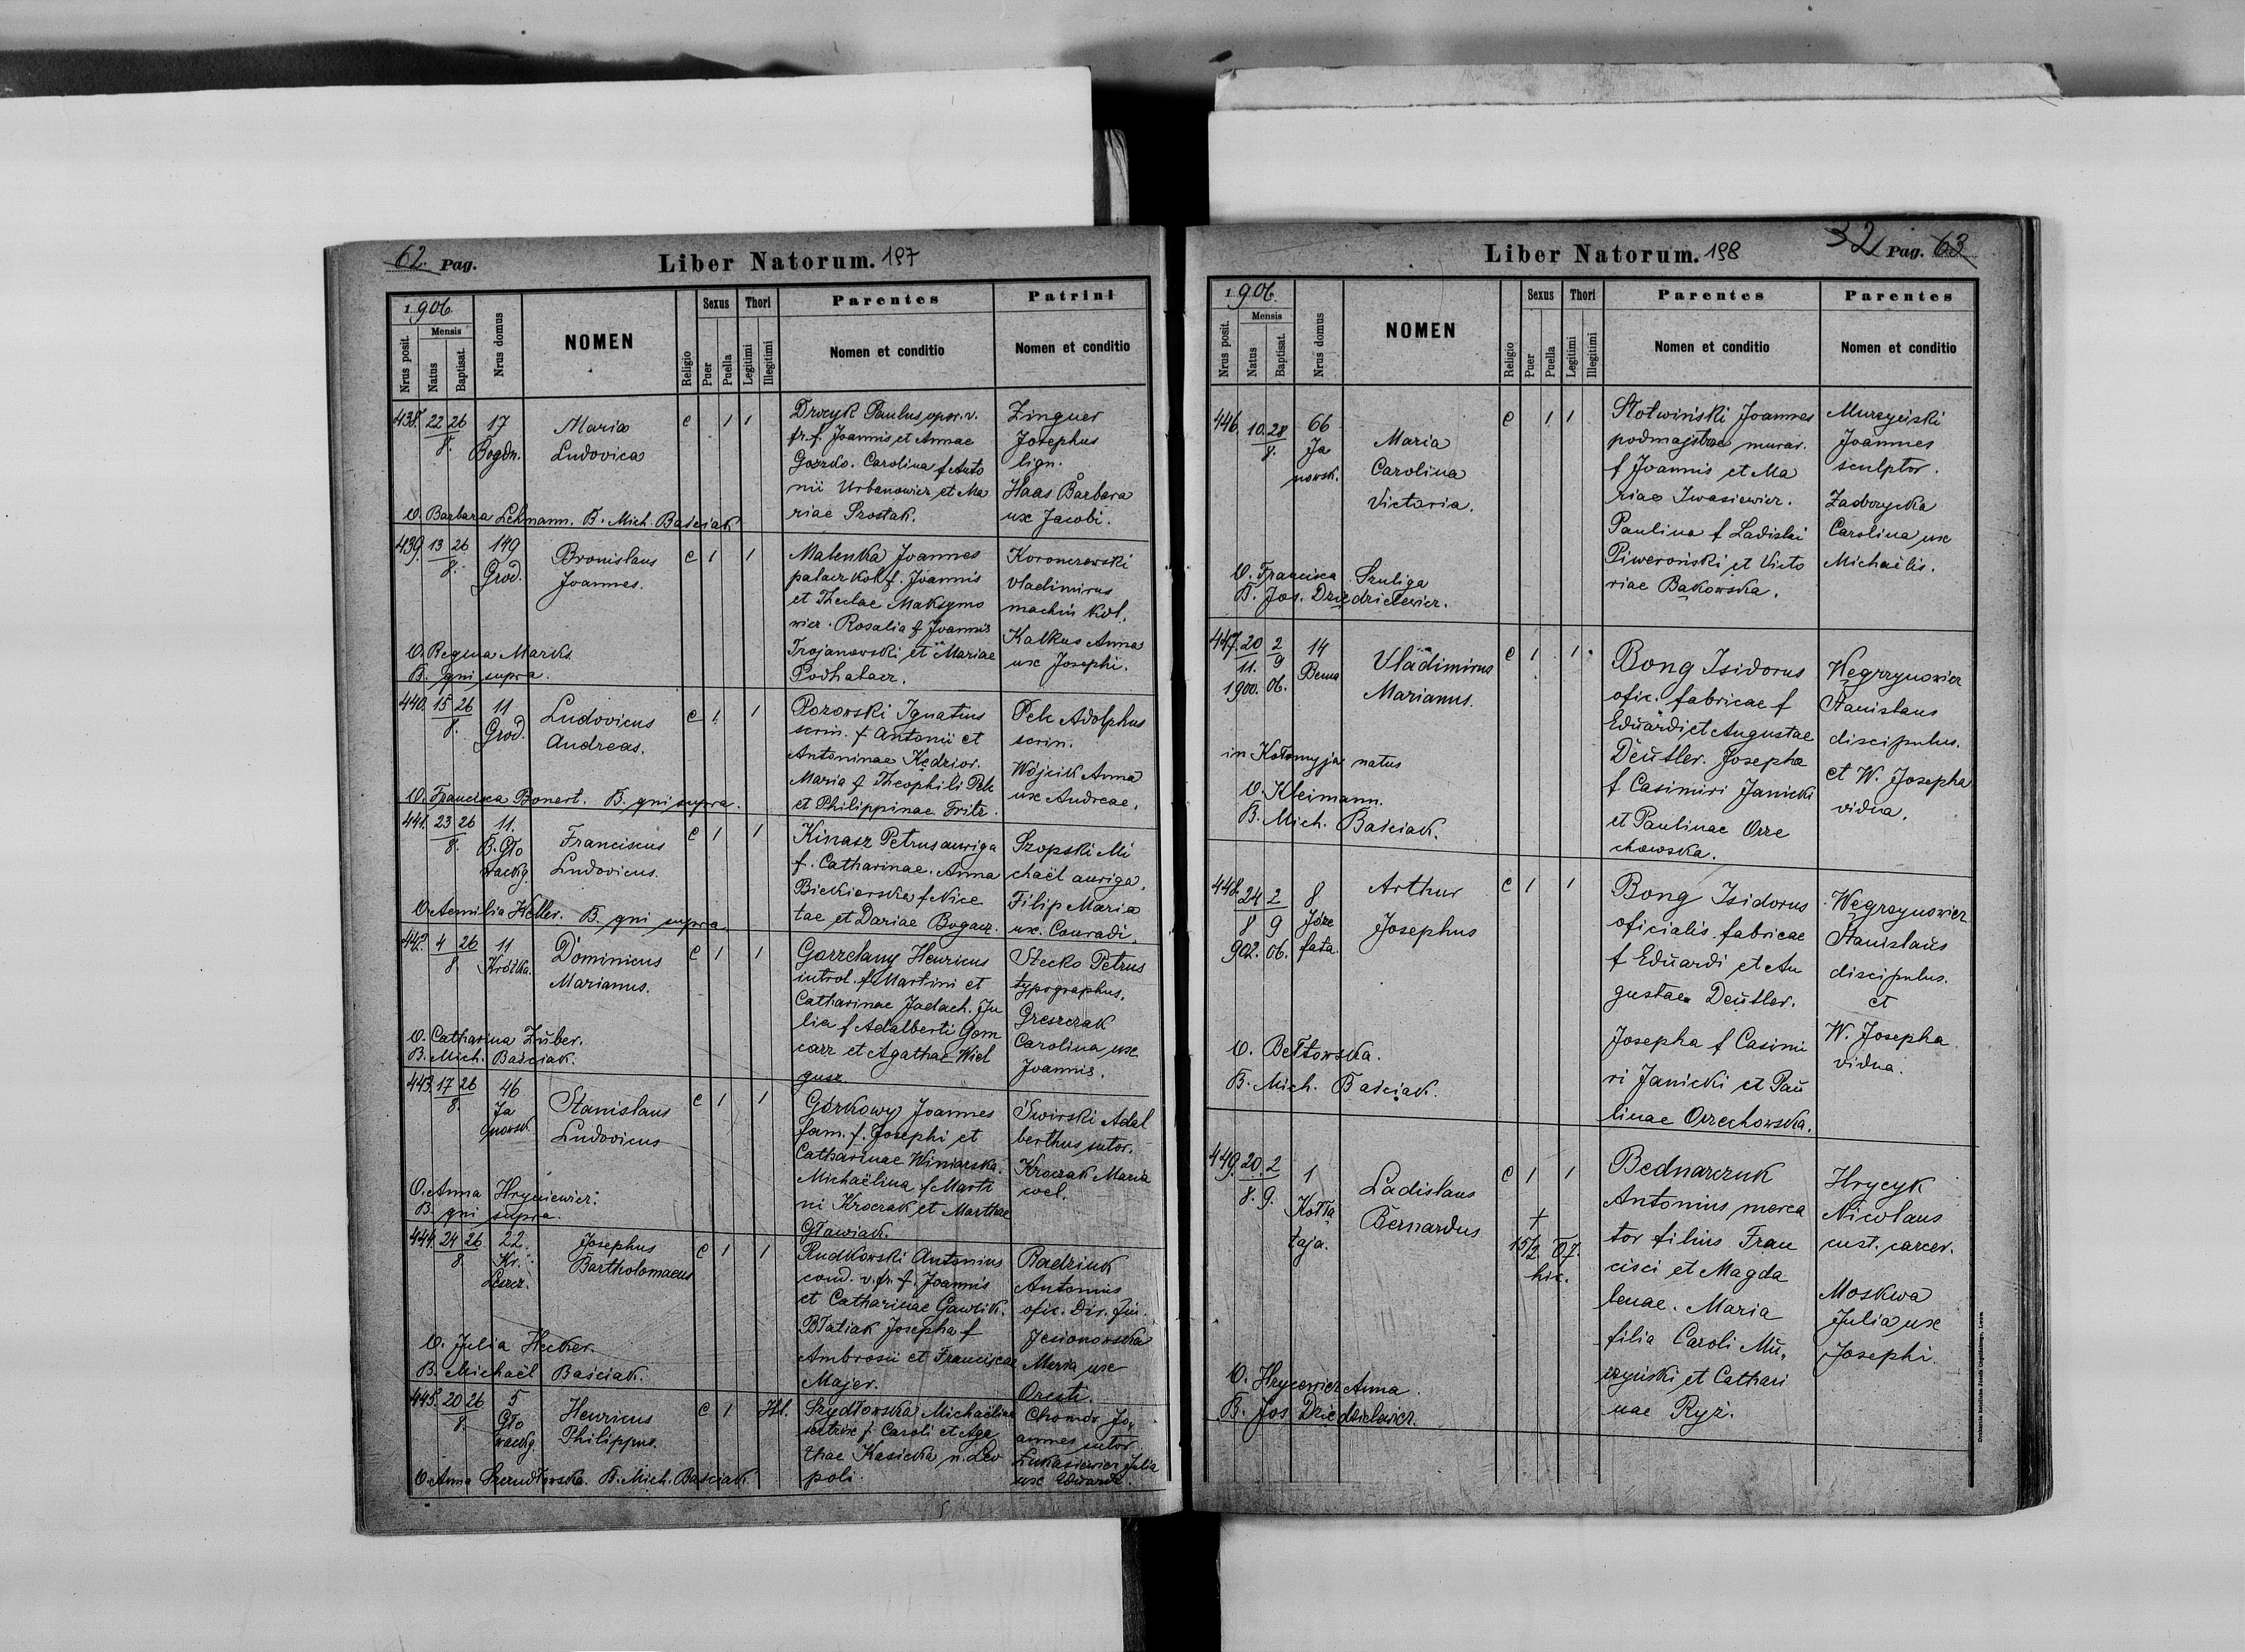 62. Pag.
Liber Natorum. 197
1906.
Nrus posit.
Mensis
Natus
Baptisat.
Nrus domus
NOMEN
Religio
Sexus
Puer
Puella
Thori
Legitimi
Illegitimi
Parentes
Nomen et conditio
Patrini
Nomen et conditio
438. 22 26
8.
17
Bogdn.
Maria
Ludovica
c 1 1
Drozyk Paulus, oper. v.
fr. f. Joannis et Annae
Gozzdo. Carolina f Anto
nii Urbanowicz et Ma
riae Szostak.
Zinguer
Josephus
lign.
Haas Barbara
ux Jacobi.
O. Barbara Lehmann. B. Mich. Baściak
439. 13 26
8.
149
Grod.
Bronislaus
Joannes.
c 1 1
Malenka Joannes
palacz kol f. Joannis
et Theclae Maksymo
wicz. Rosalia f Joannis
Trojanowski et Mariae
Podhalacz.
Koronczewski
Vladimirus
machin kol.
Kalkus Anna
ux Josephi.
O. Regina Marks.
B. qni supra.
440. 15 26
8.
11
Grod.
Ludovicus
Andreas.
c 1 1
Pozowski Ignatius
scrin. f Antonii et
Antoninae Kędzior.
Maria f Theophili Pelc
et Philippinae Fritz.
Pelc Adolphus
scrin.
Wojcik Anna
ux Andreae.
O. Francisca Bonert. B. qni supra.
441. 23 26
8.
11.
B. Gło
wackg.
Franciscus
Ludovicus.
c 1 1
Kinasz Petrus auriga
f. Catharinae. Anna
Bickiarska f Nice
tae et Dariae Bogacz.
Szopski Mi
chaël auriga.
Filip Maria
ux. Conradi.
O. Aemilia Keller. B. qni supra.
442. 4 26
8.
11
Krótka.
Dominicus
Marianus.
c 1 1
Gorzelany Henricus
introl. f Martini et
Catharinae Jadach. Ju
lia f Adalberti Gom
carz et Agathae Wiel
gusz.
Stecko Petrus
typographus.
Greszczak
Carolina ux
Joannis.
O. Catharina Zuber.
B. Mich. Baściak.
443. 17 26
8.
46
Ja
nowsk.
Stanislaus
Ludovicus
c 1 1
Górkowy Joannes
fam. f. Josephi et
Catharinae Winiarska.
Michaëlina f Marti
ni Kroczak et Marthae
Gławiak.
Świrski Adal
berthus sutor.
Kroczak Maria
coel.
O. Anna Hryniewicz.
B. qni supra.
444. 24 26
8.
22.
Kr.
Leszcz.
Josephus
Bartholomaeus
c 1 1
Rudkowski Antonius
cond. v. fr. f. Joannis
et Catharinae Gawlik.
Błatiak Josepha f
Ambrosii et Franciscae
Majer.
Badziuk
Antonius
ofic. Dir. fin.
Jesionowska
Maria ux
Oresti.
O. Julia Hecker.
B. Michaël Baściak.
445. 20 26
8.
5
Gło
wackg.
Henricus
Philippus.
c 1 Ill.
Szydłowska Michaëlina
sutrix f. Caroli et Aga
thae Kasicka n. Leo
poli.
Chomów Jo
annes sutor
Lukasiewicz Julia
ux Eduardi.
O. Anna Szczudłowska. B. Mich. Baściak.
Liber Natorum. 198
32 Pag. 63
1906.
Nrus posit.
Mensis
Natus
Baptisat.
Nrus domus
NOMEN
Religio
Sexus
Puer
Puella
Thori
Legitimi
Illegitimi
Parentes
Nomen et conditio
Parentes
Nomen et conditio
446. 10. 28
8.
66
Ja
nowsk.
Maria
Carolina
Victoria.
c 1 1
Słotwiński Joannes
podmajstrae murar.
f Joannis et Ma
riae Iwasiewicz.
Paulina f Ladislai
Piweroński et Victo
riae Bąkowska.
Murzyński
Joannes
sculptor.
Zadorzycka
Carolina ux
Michaëlis.
O. Francisca Szuliga
B. Jos. Dziedzielewicz.
447. 20 2
11. 9
1900. 06.
14
Bema
Vladimirus
Marianus.
c 1 1
Bong Isidorus
ofic. fabricae f
Eduardi et Augustae
Deutler. Josepha
f Casimiri Janicki
et Paulinae Orze
chowska.
Węgrzynowicz
Stanislaus
discipulus.
et W. Josepha
vidua.
in Kołomyja natus
O. Kleimann.
B. Mich. Baściak.
448. 24 2
8 9
902. 06.
8
Józe
fata.
Arthur
Josephus
c 1 1
Bong Isidorus
oficialis fabricae
f Eduardi et Au
gustae Deutler.
Josepha f Casimi
ri Janicki et Pau
linae Orzechowska.
Węgrzynowicz
Stanislaus
discipulus.
et
W. Josepha
vidua.
O. Bełtowska.
B. Mich. Baściak.
449. 20. 2
8. 9.
1
Kołłą
taja.
Ladislaus
Bernardus
c 1 1
†
15/2 07.
hic.
Bednarczuk
Antonius merca
tor filius Fran
cisci et Magda
lenae. Maria
filia Caroli Mu
rzyński et Cathari
nae Ryż.
Hrycyk
Nicolaus
cust. carcer.
Moskwa
Julia ux
Josephi.
O. Hrycewicz Anna.
B. Jos Dziedzielewicz.